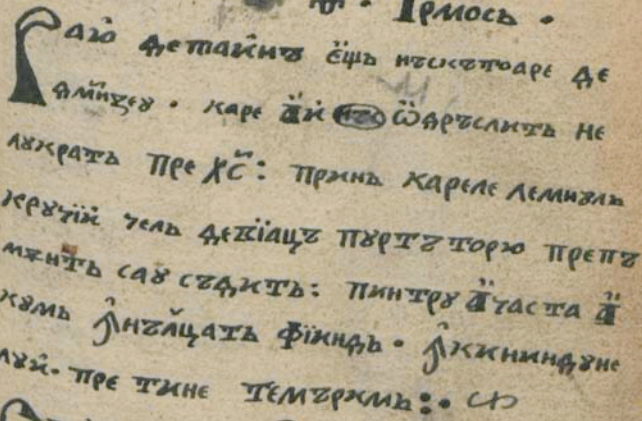 Ірмось ·
Раю детаинъ ещь нъскътоаре де
дм҃нꙁеу · каре ай нъс ѿдръслить не
лукрать пре хс҃: принь кареле лемнуль
кручїи чель девїацъ пуртъторю препъ
мѫнть сау съдить: пинтру ачаста а
кумь ꙟнълцать фїиндь · ꙟкининдуне
луй · пре тине темъримь :·